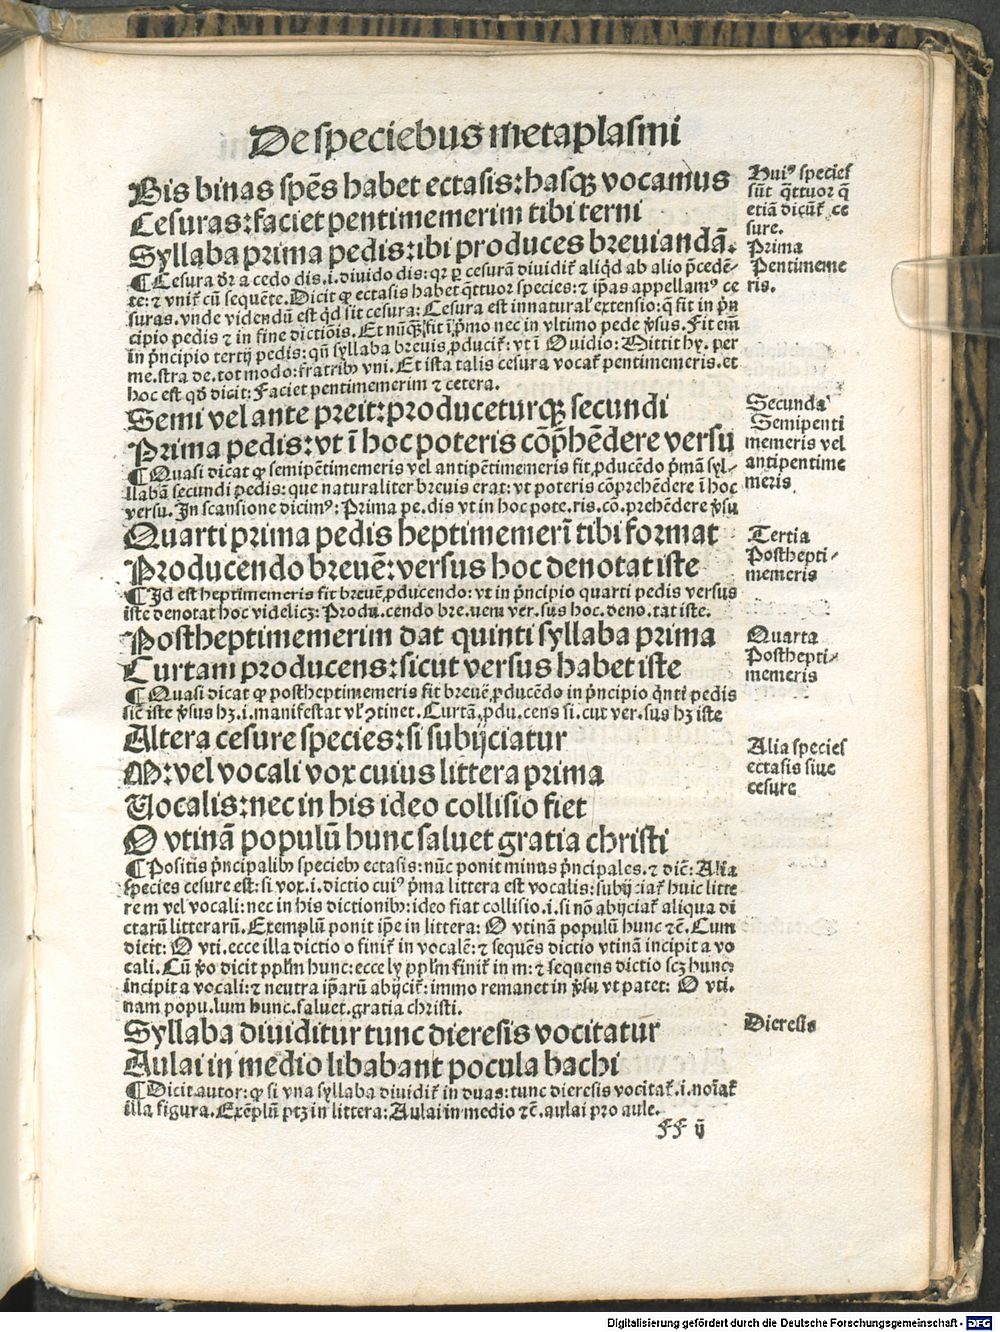 De speciebus metaplasmi
Bis binas spēs habet ectasis: hasqꝫ vocamus
Cesuras: faciet pentimemerim tibi terni
Syllaba prima pedis: ibi produces breuiandā.
¶ Cesura dr̄ a cedo dis .i. diuido dis: qr ꝑ cesurā diuidit᷑ aliqd ab alio p̄cedē-
te: ⁊ vnit᷑ cū sequēte. Dicit ꝙ ectasis habet q̄ttuor species: ⁊ ip̄as appellamꝰ ce
suras. vnde videndū est qd sit cesura: Cesura est innatural᷑ extensio: q̄ fit in p̄n
cipio pedis ⁊ in fine dictiōis. Et nūqꝫ fit ī p̄mo nec in vltimo pede v̓sus. Fit em̄
in p̄ncipio tertij pedis: qn̄ syllaba breuis ꝓducit᷑: vt ī Ouidio: Mittit hy. per
me. stra de. tot modo: fratribꝰ vni. Et ista talis cesura vocat᷑ pentimemeris. et
hoc est qd̓ dicit: Faciet pentimemerim ⁊ cetera.
Semi vel ante preit: produceturqꝫ secundi
Prima pedis: vt ī hoc poteris cōp̄hēdere versu
¶ Quasi dicat ꝙ semipētimemeris vel antipētimemeris fit ꝓducēdo p̄mā syl-
labā secundi pedis: que naturaliter breuis erat: vt poteris cōprehēdere ī hoc
versu. In scansione dicimꝰ: Prima pe. dis vt in hoc pote. ris. co. prehēdere v̓su
Quarti prima pedis heptimemerī tibi format
Producendo breuē: versus hoc denotat iste
¶ Id est heptimemeris fit breuē ꝓducendo: vt in p̄ncipio quarti pedis versus
iste denotat hoc videlicꝫ: Produ. cendo bre. uem ver. sus hoc. deno. tat iste.
Postheptimemerim dat quinti syllaba prima
Curtam producens: sicut versus habet iste
¶ Quasi dicat ꝙ postheptimemeris fit breuē ꝓducēdo in p̄ncipio q̄nti pedis
sic̄ iste v̓sus hꝫ .i. manifestat vl᷑ ꝯtinet. Curtā ꝓdu. cens si. cut ver. sus hꝫ iste
Altera cesure species: si subijciatur
M: vel vocali vox cuius littera prima
Vocalis: nec in his ideo collisio fiet
O vtinā populū hunc saluet gratia christi
¶ Positis p̄ncipalibꝰ speciebꝰ ectasis: nūc ponit minus p̄ncipales. ⁊ dic̄: Alia
species cesure est: si vox .i. dictio cuiꝰ p̄ma littera est vocalis: subijciat᷑ huic litte
re m vel vocali: nec in his dictionibꝰ: ideo fiat collisio .i. si nō abijciat᷑ aliqua di
ctarū litterarū. Exemplū ponit ip̄e in littera: O vtinā populū hunc ⁊c̄. Cum
dicit: O vti. ecce illa dictio o finit᷑ in vocalē: ⁊ sequēs dictio vtinā incipit a vo
cali. Cū v̓o dicit ppl̄m hunc: ecce ly ppl̄m finit᷑ in m: ⁊ sequens dictio scꝫ hunc
incipit a vocali: ⁊ neutra ip̄arū abijcit᷑: immo remanet in v̓su vt patet: O vti.
nam popu. lum hunc. saluet. gratia christi.
Syllaba diuiditur tunc dieresis vocitatur
Aulai in medio libabant pocula bachi
¶ Dicit autor: ꝙ si vna syllaba diuidit᷑ in duas: tunc dieresis vocitat᷑ .i. noīat᷑
illa figura. Exēplū ptꝫ in littera: Aulai in medio ⁊c̄. aulai pro aule.
ff ij
Huiꝰ species
sūt q̄ttuor q̄
etiā dicūt᷑ ce
sure.
Prima
Pentimeme
ris.
Secunda
Semipenti
memeris vel
antipentime
meris
Tertia
Posthepti-
memeris
Quarta
Posthepti-
memeris
Alia species
ectasis siue
cesure
Dieresis
Digitalisierung gefördert durch die Deutsche Forschungsgemeinschaft - DFG